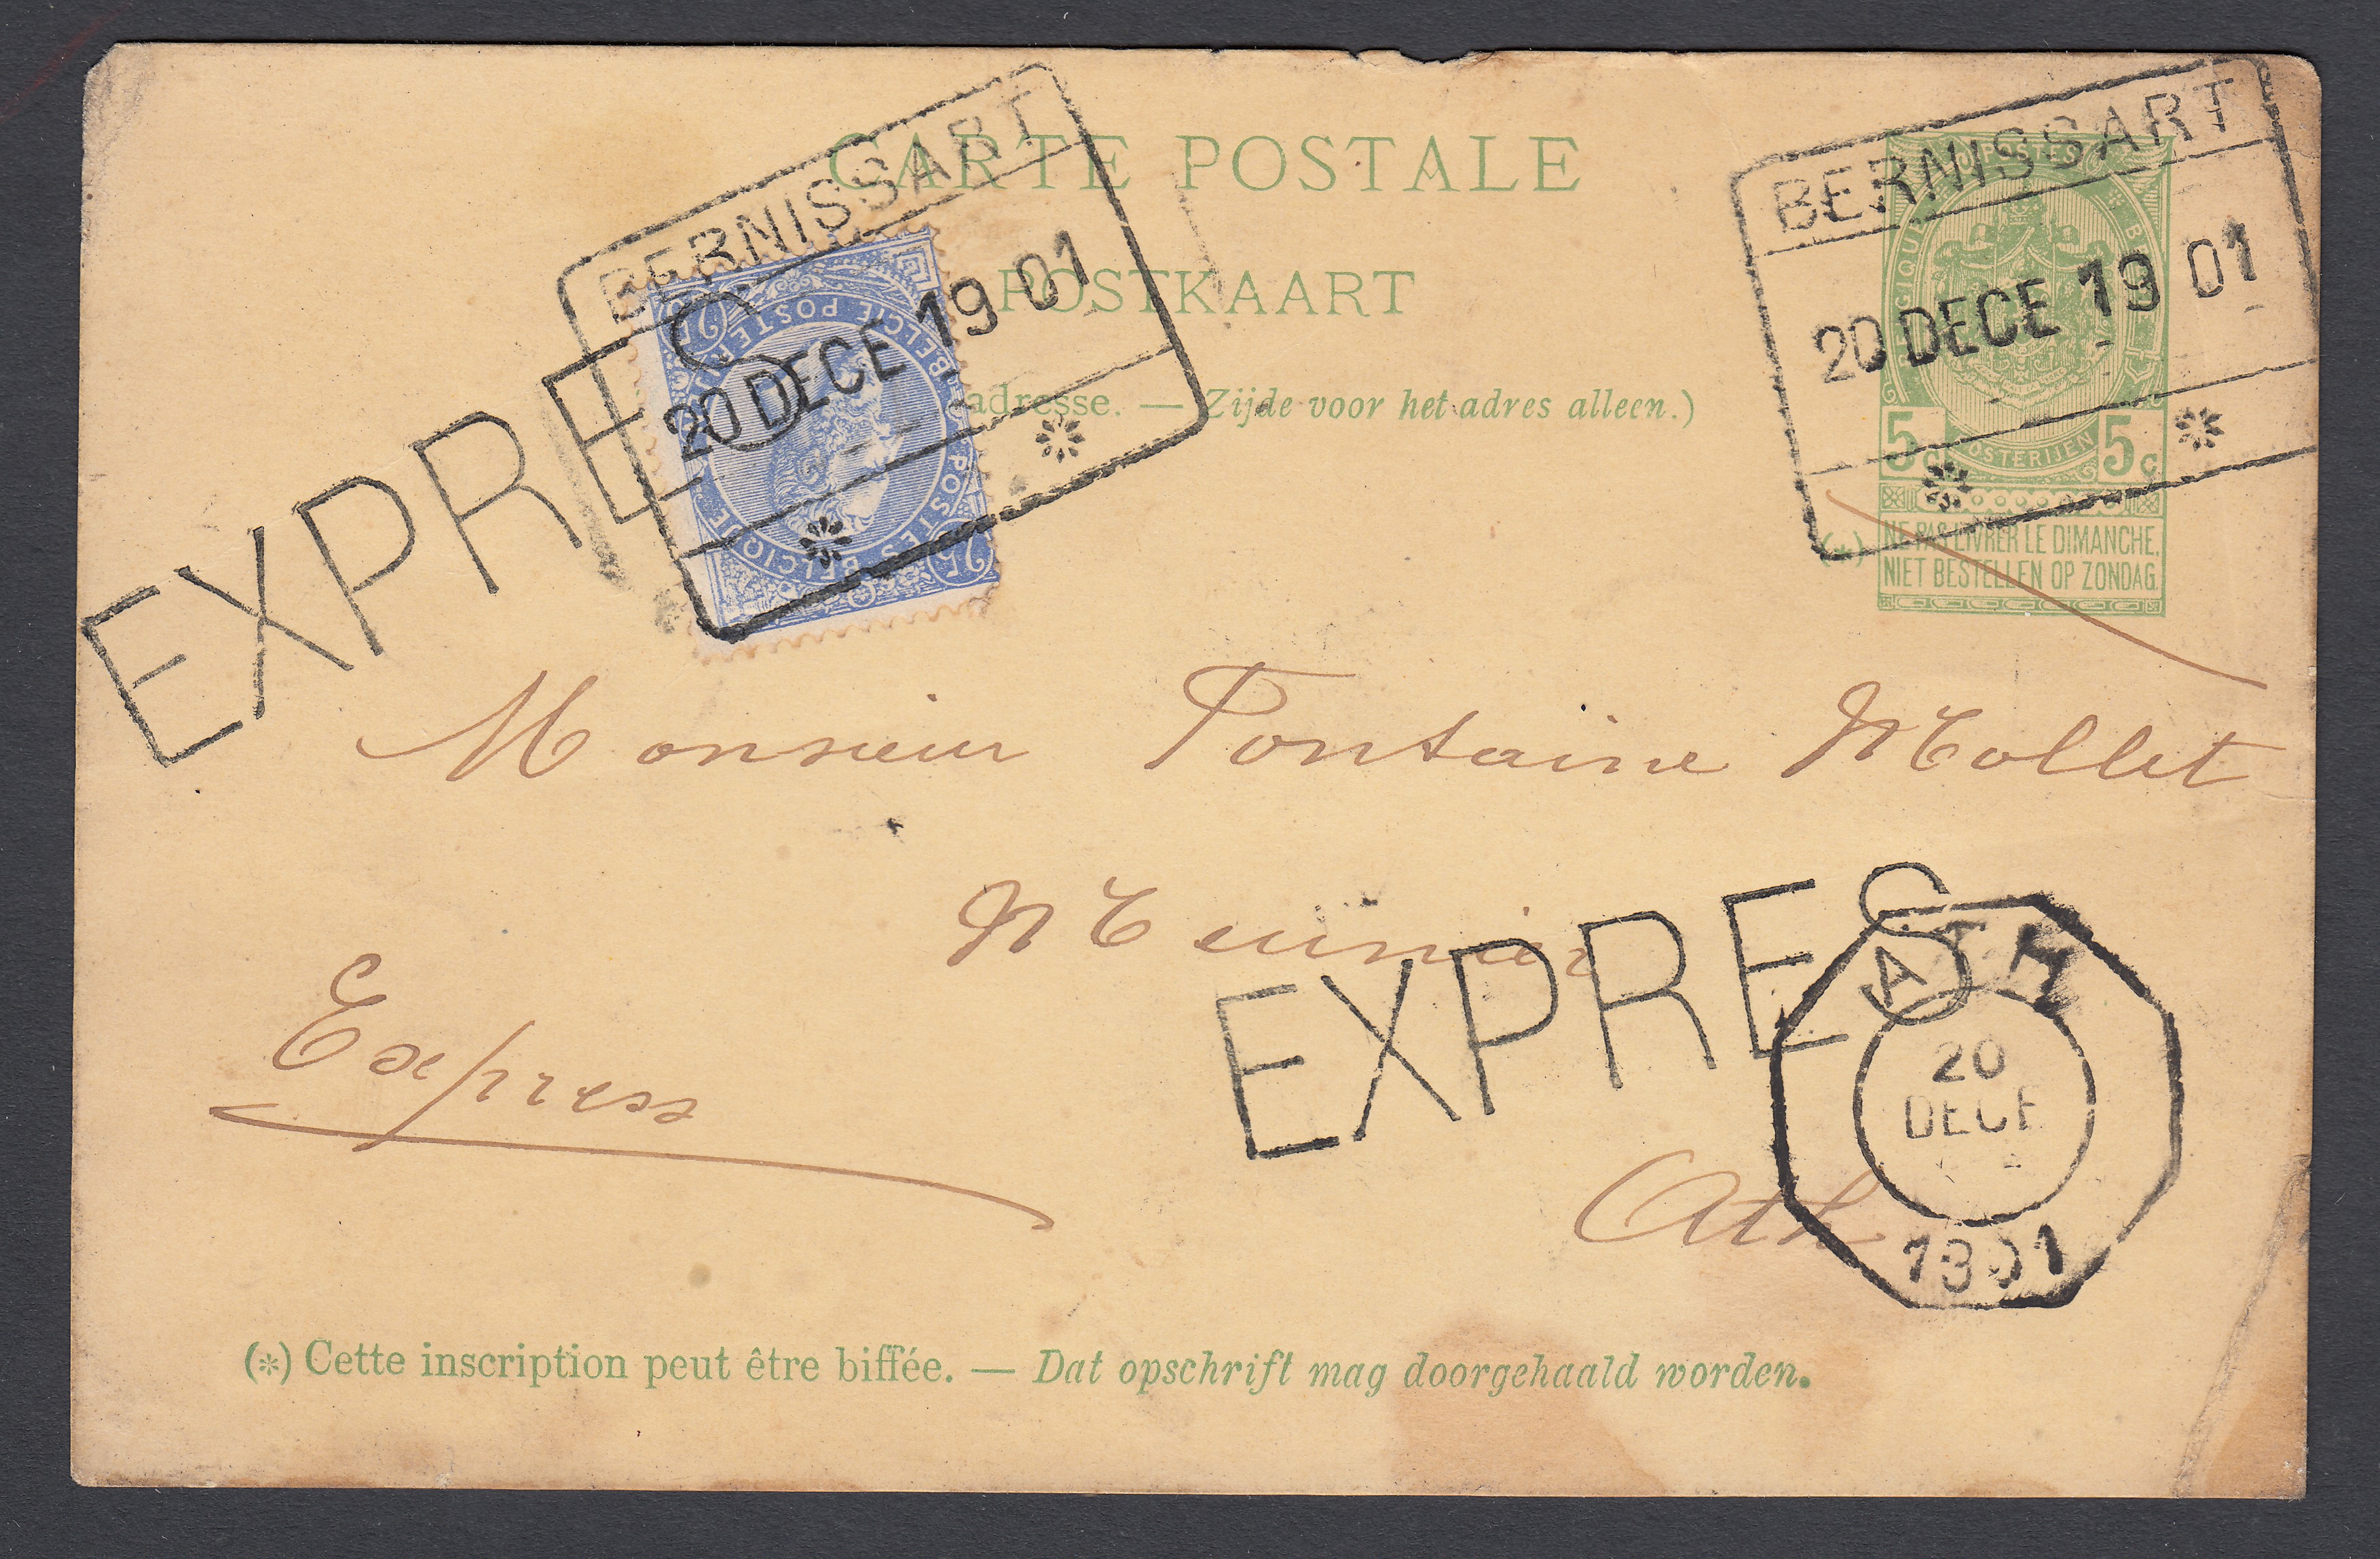 CARTE POSTALE
POSTKAART
adresse. — Zijde voor het adres alleen.)
BERNISSART
20 DECE 19 01
BERNISSART
20 DECE 19 01
EXPRES
25
BELGIE POSTERIJEN
POSTES BELGIQUE
25
POSTES
BELGIQUE
POSTERIJEN
5 c 5 c
(*) NE PAS LIVRER LE DIMANCHE.
NIET BESTELLEN OP ZONDAG.
Monsieur Fontaine Mollet
Meunier
Express
EXPRES
ATH
20
DECE
1901
Ath
(*) Cette inscription peut être biffée. — Dat opschrift mag doorgehaald worden.